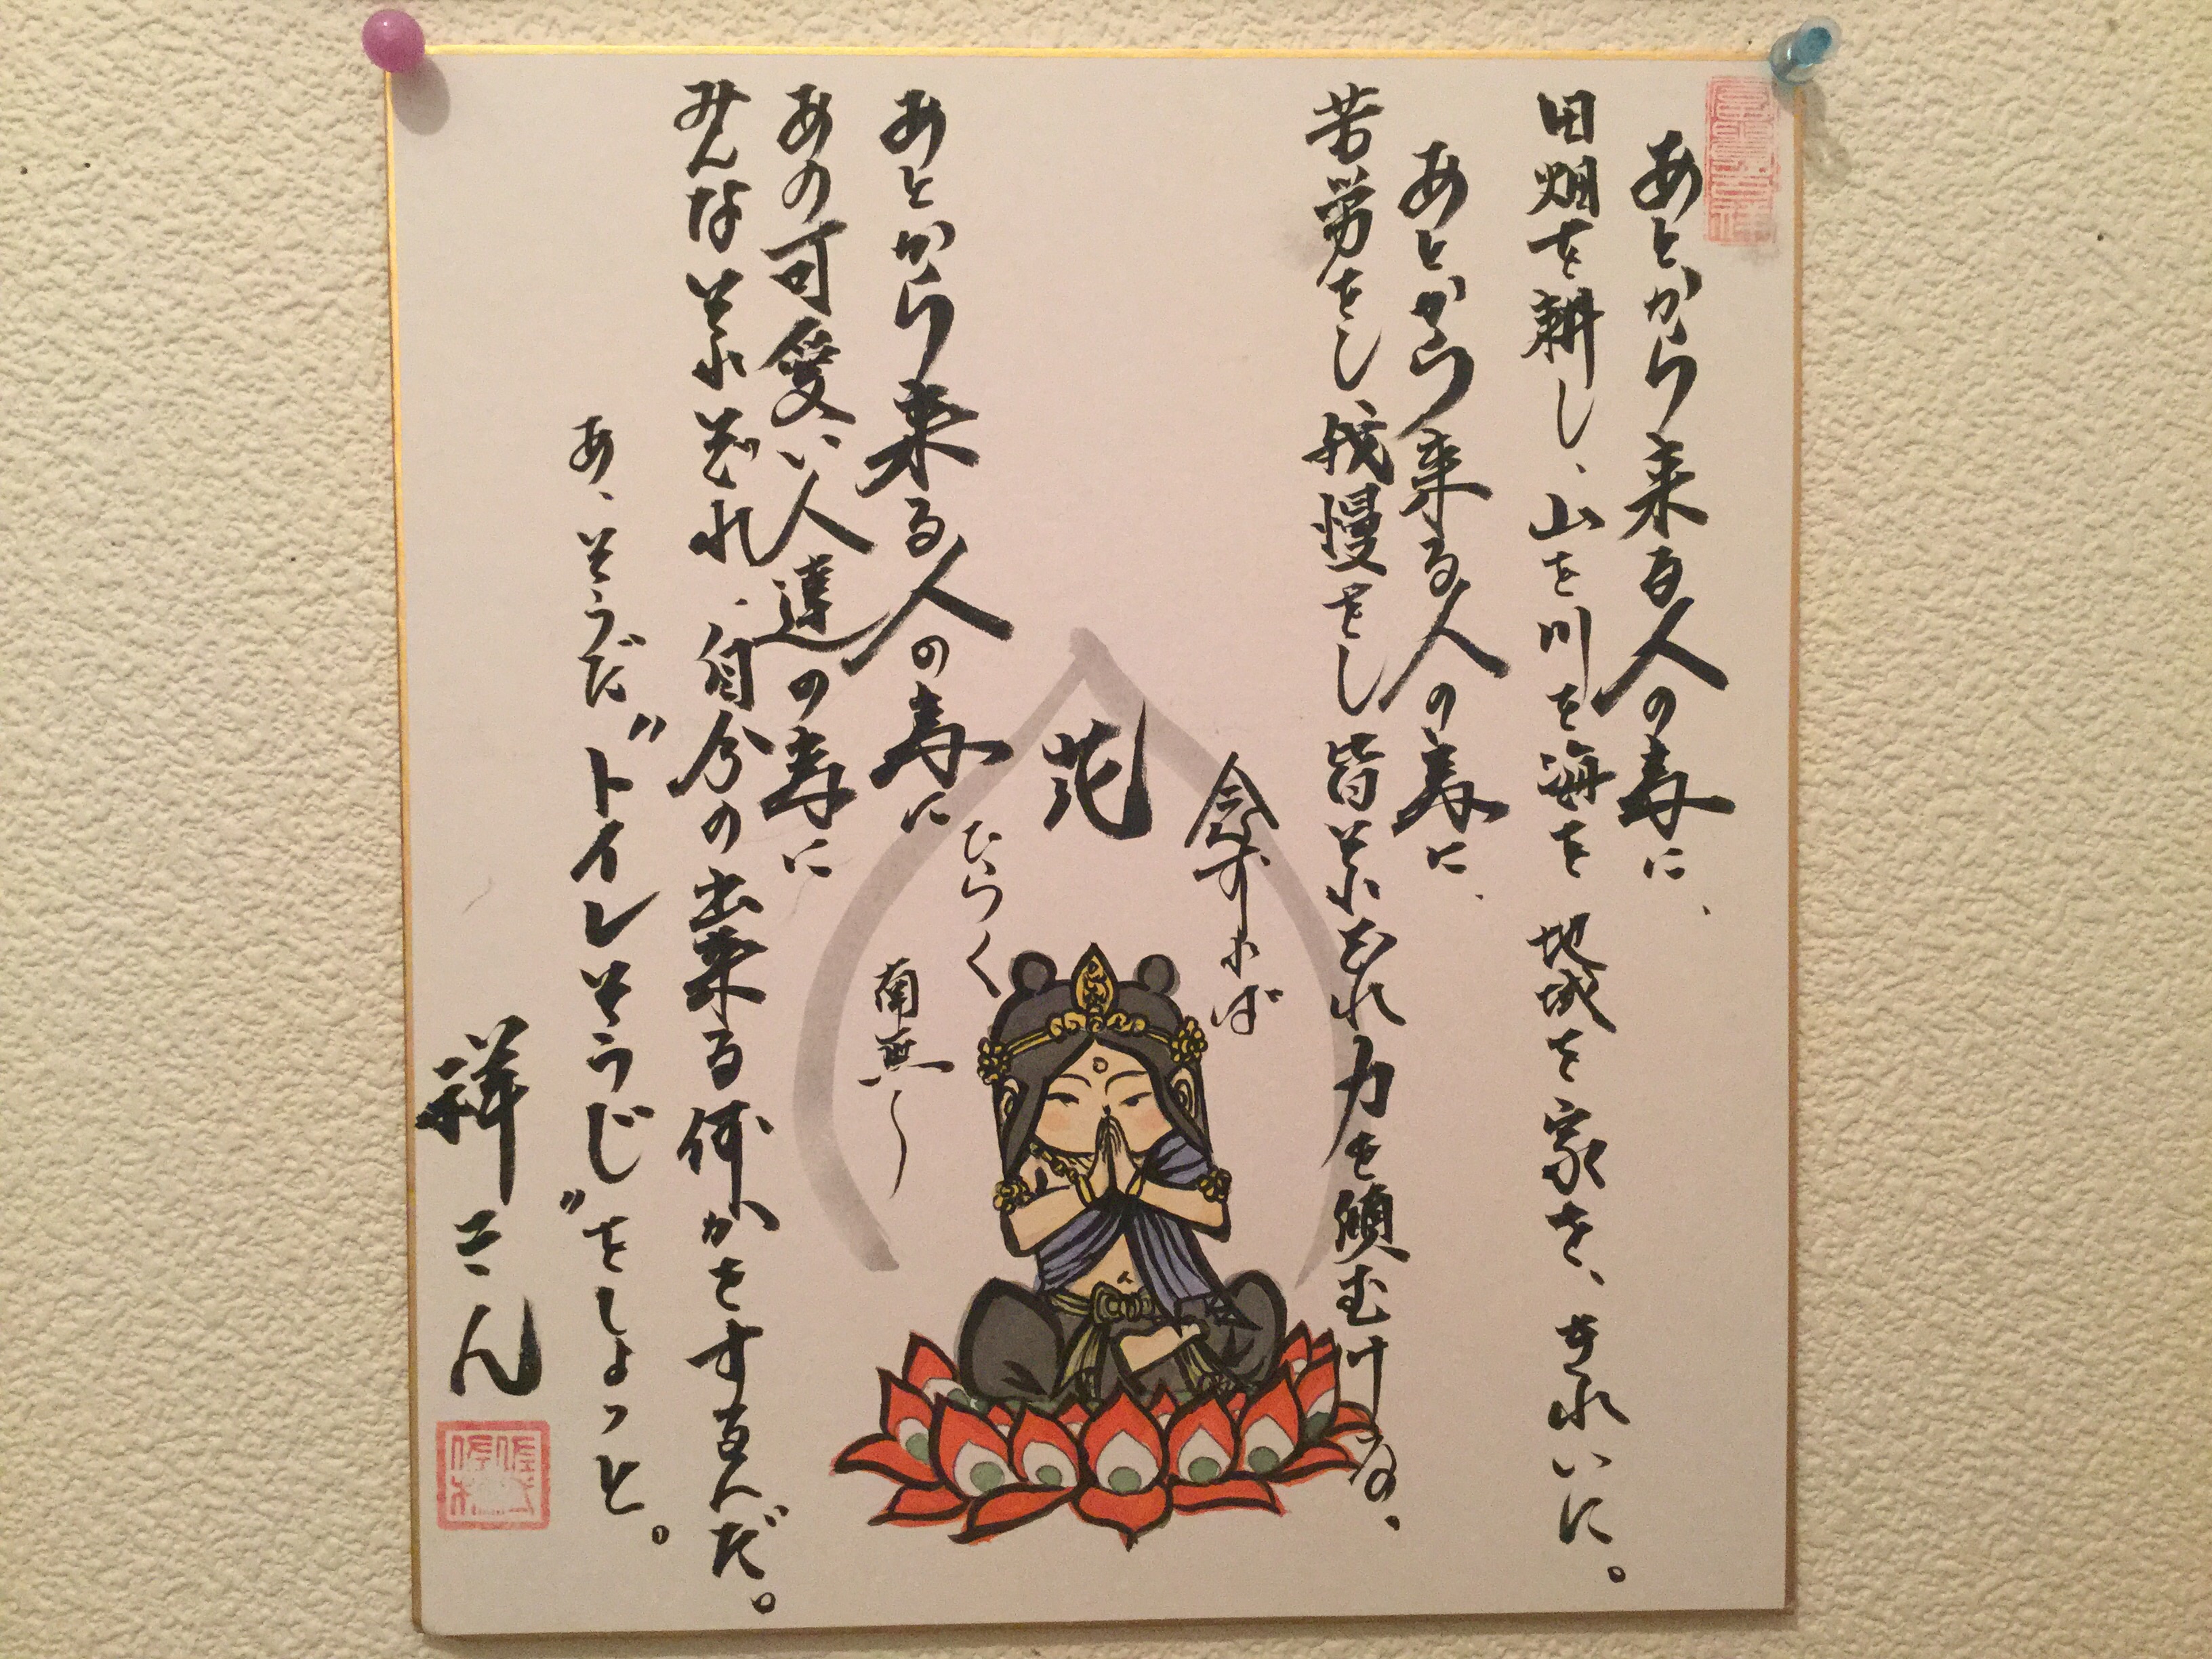 あとから来る人の為に、
田畑を耕し、山を川を海を 地域を家を、きれいに。
あとから来る人の為に、
苦労をし我慢をし皆それぞれ力を傾むける、
念ずれば
花
ひらく
南無〜
あとから来る人の為に
あの可愛い人達の為に
みんなそれぞれ、自分の出来る何かをするんだ。
あ、そうだ〝トイレそうじ〟をしょっと。
祥さん